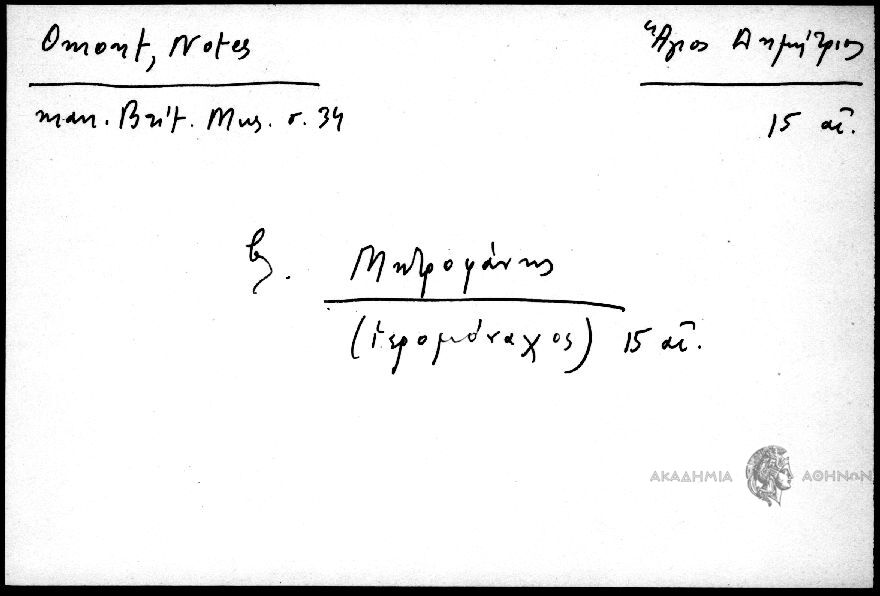 Omont, Notes
man. Brit. Mus. σ. 34
Ἅγιος Δημήτριος
15 αἰ.
βλ. Μητροφάνης
(ἱερομόναχος) 15 αἰ.
ΑΚΑΔΗΜΙΑ ΑΘΗΝΩΝ